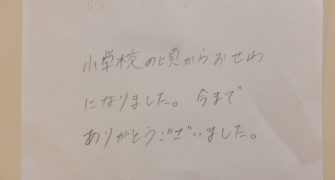 小学校の頃からおせわ
になりました。今まで
ありがとうございました。